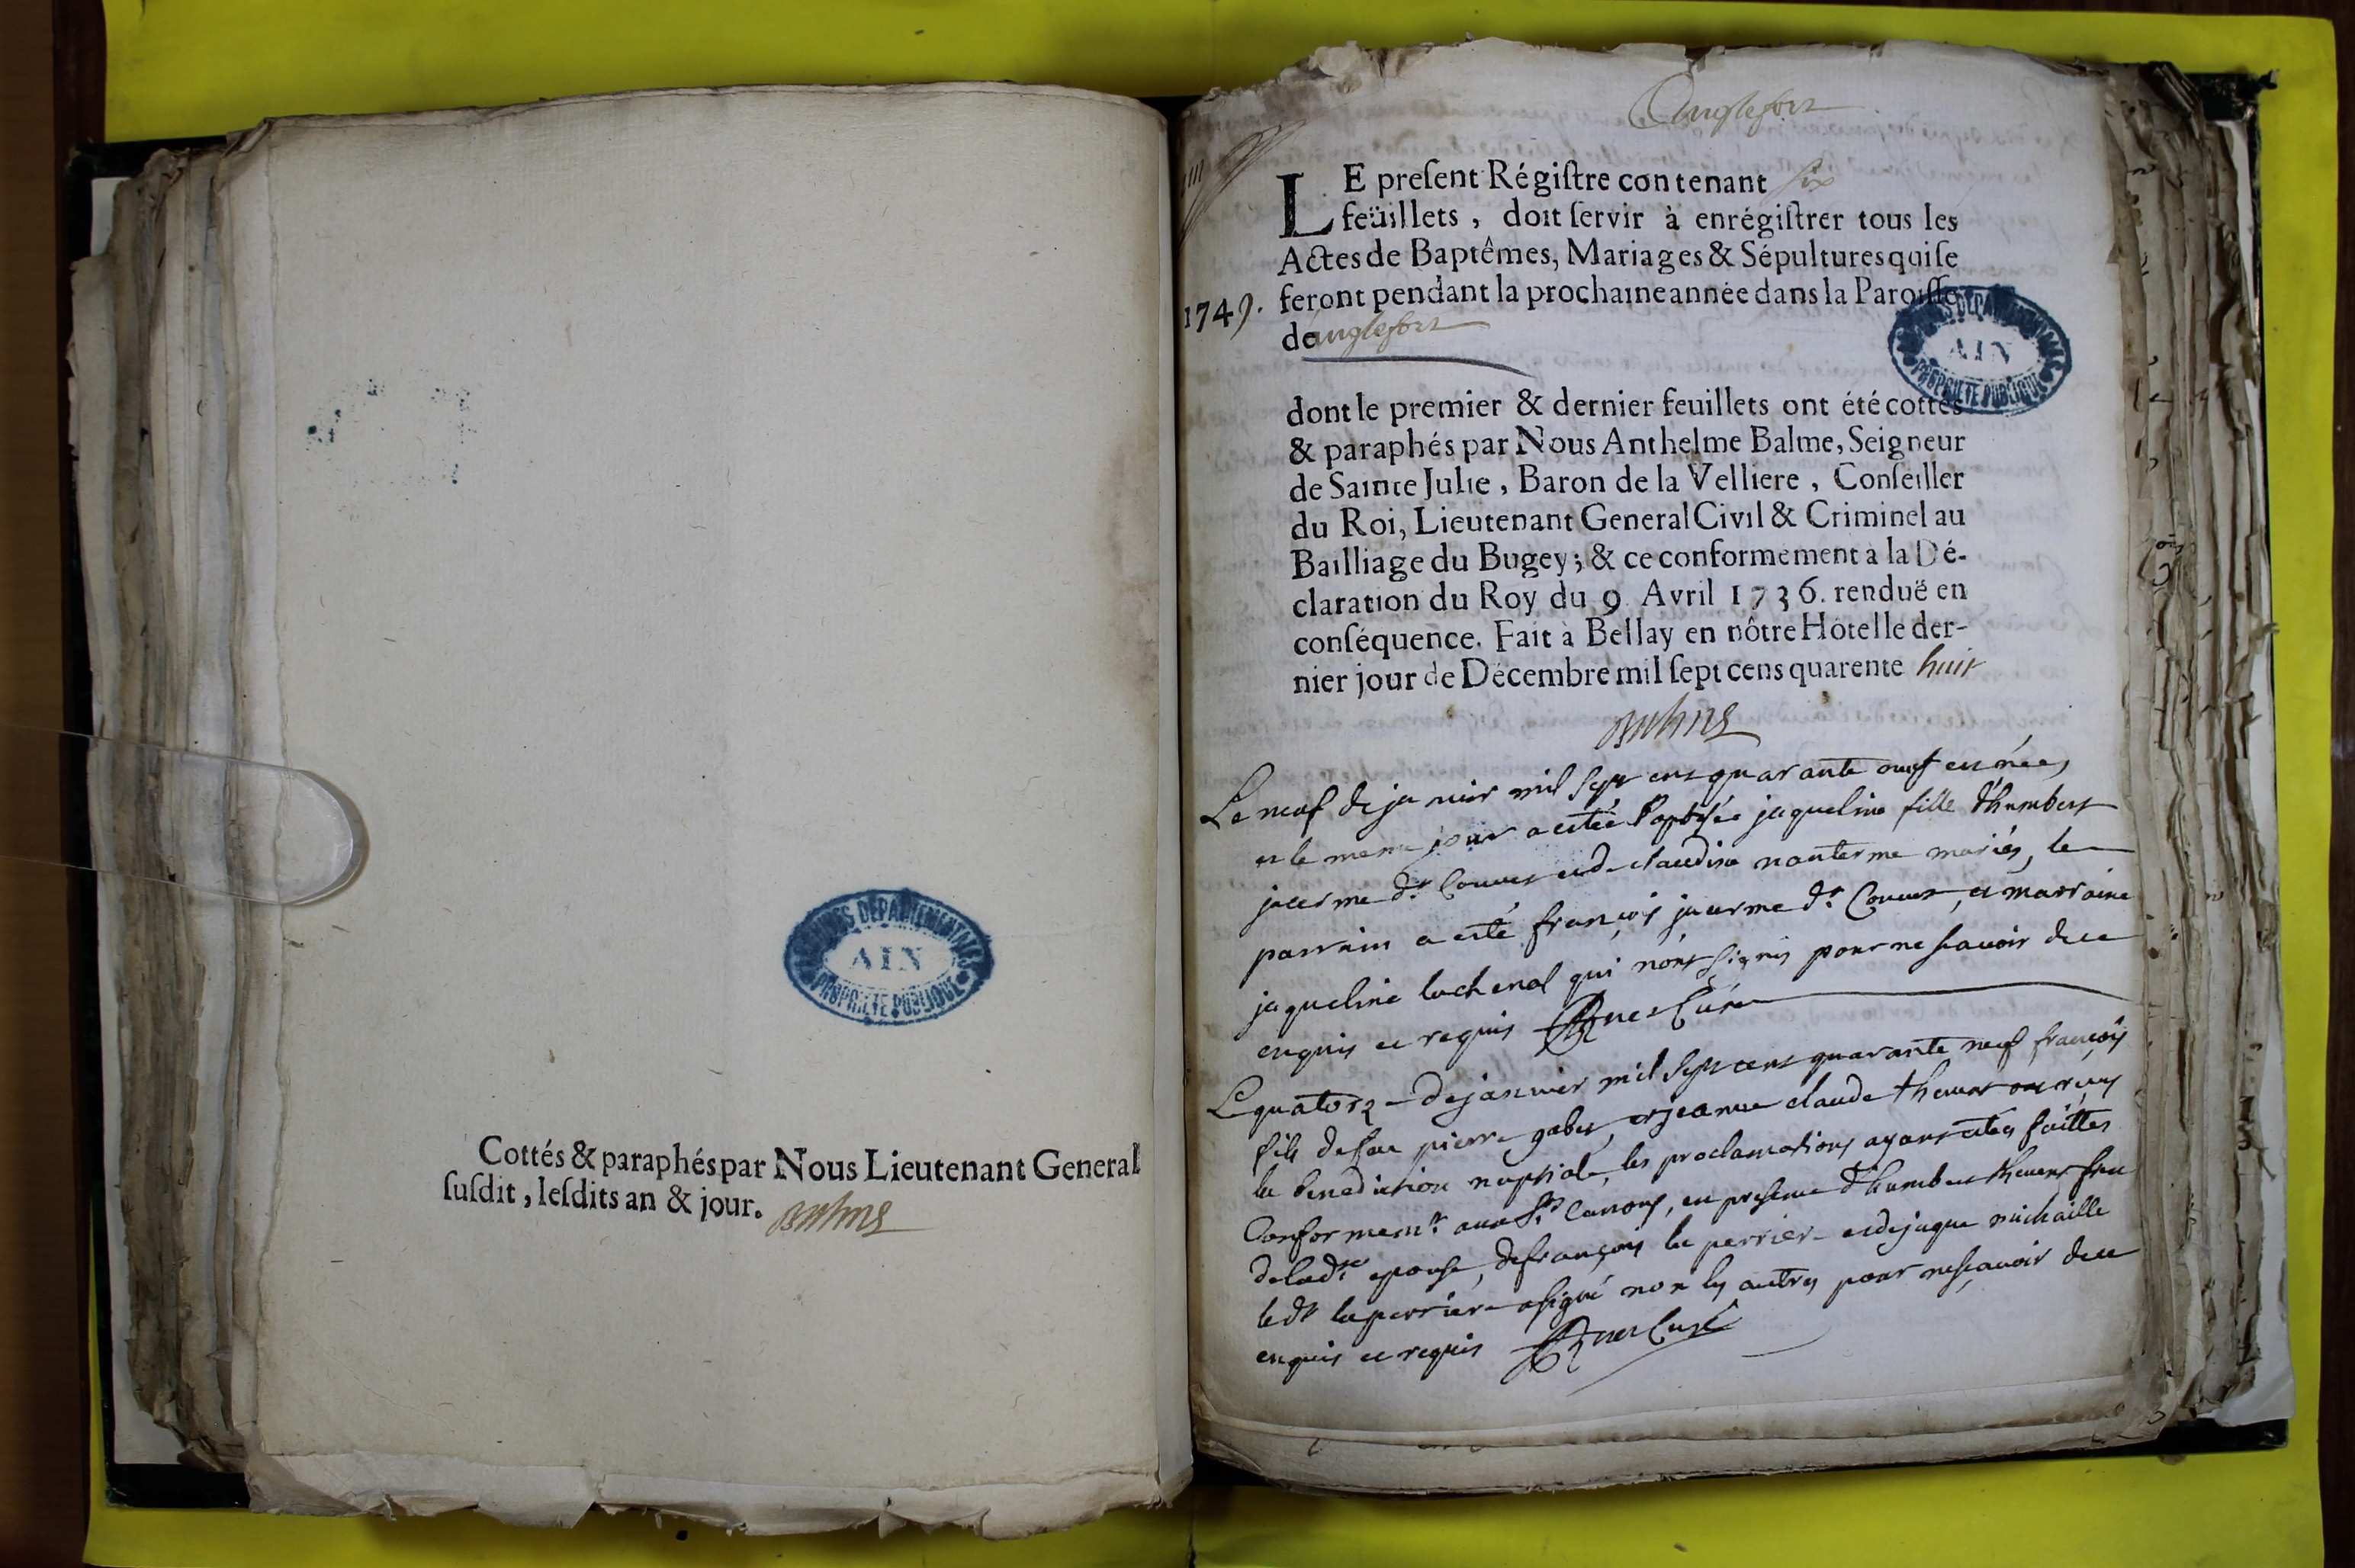 Cottés & paraphés par Nous Lieutenant General
susdit, lesdits an & jour.
ARCHIVES DEPARTEMENTALES
AIN
PROPRIETE PUBLIQUE
Anglefort
LE present Régistre contenant six
feüillets, doit servir à enrégistrer tous les
Actes de Baptêmes, Mariages & Sépultures qui se
1749. feront pendant la prochaine année dans la Paroisse
de anglefort
ARCHIVES DEPARTEMENTALES
AIN
PROPRIETE PUBLIQUE
dont le premier & dernier feuillets ont été cottés
& paraphés par Nous Anthelme Balme, Seigneur
de Sainte Julie, Baron de la Velliere, Conseiller
du Roi, Lieutenant General Civil & Criminel au
Bailliage du Bugey; & ce conformement à la Dé-
claration du Roy du 9 Avril 1736. renduë en
conséquence. Fait à Bellay en nôtre Hôtel le der-
nier jour de Décembre mil sept cens quarente huit
Le neuf de janvier mil sept cent quarante neuf est née,
et le meme jour a estée baptisée jaqueline fille d'humbert
jacerme dt Couvet et de claudine nanterme mariés, le
parrain a esté françois jacerme dt Couvet, et marraine
jaqueline lachenal qui n'ont signés pour ne scavoir de ce
enquis et requis curé
Le quatorze de janvier mil sept cent quarante neuf françois
fils de feu pierre gabet, et jeanne claude thevenet ont reçus
la benediction nuptiale, les proclamations ayant étés faittes
Conformemt. aux Sts. Canons, en presence d'humbert frere
de ladte epouse, de françois la perrier et de jaque michaille
ledt laperrier a signé non les autres pour ne scavoir de ce
enquis et requis curé